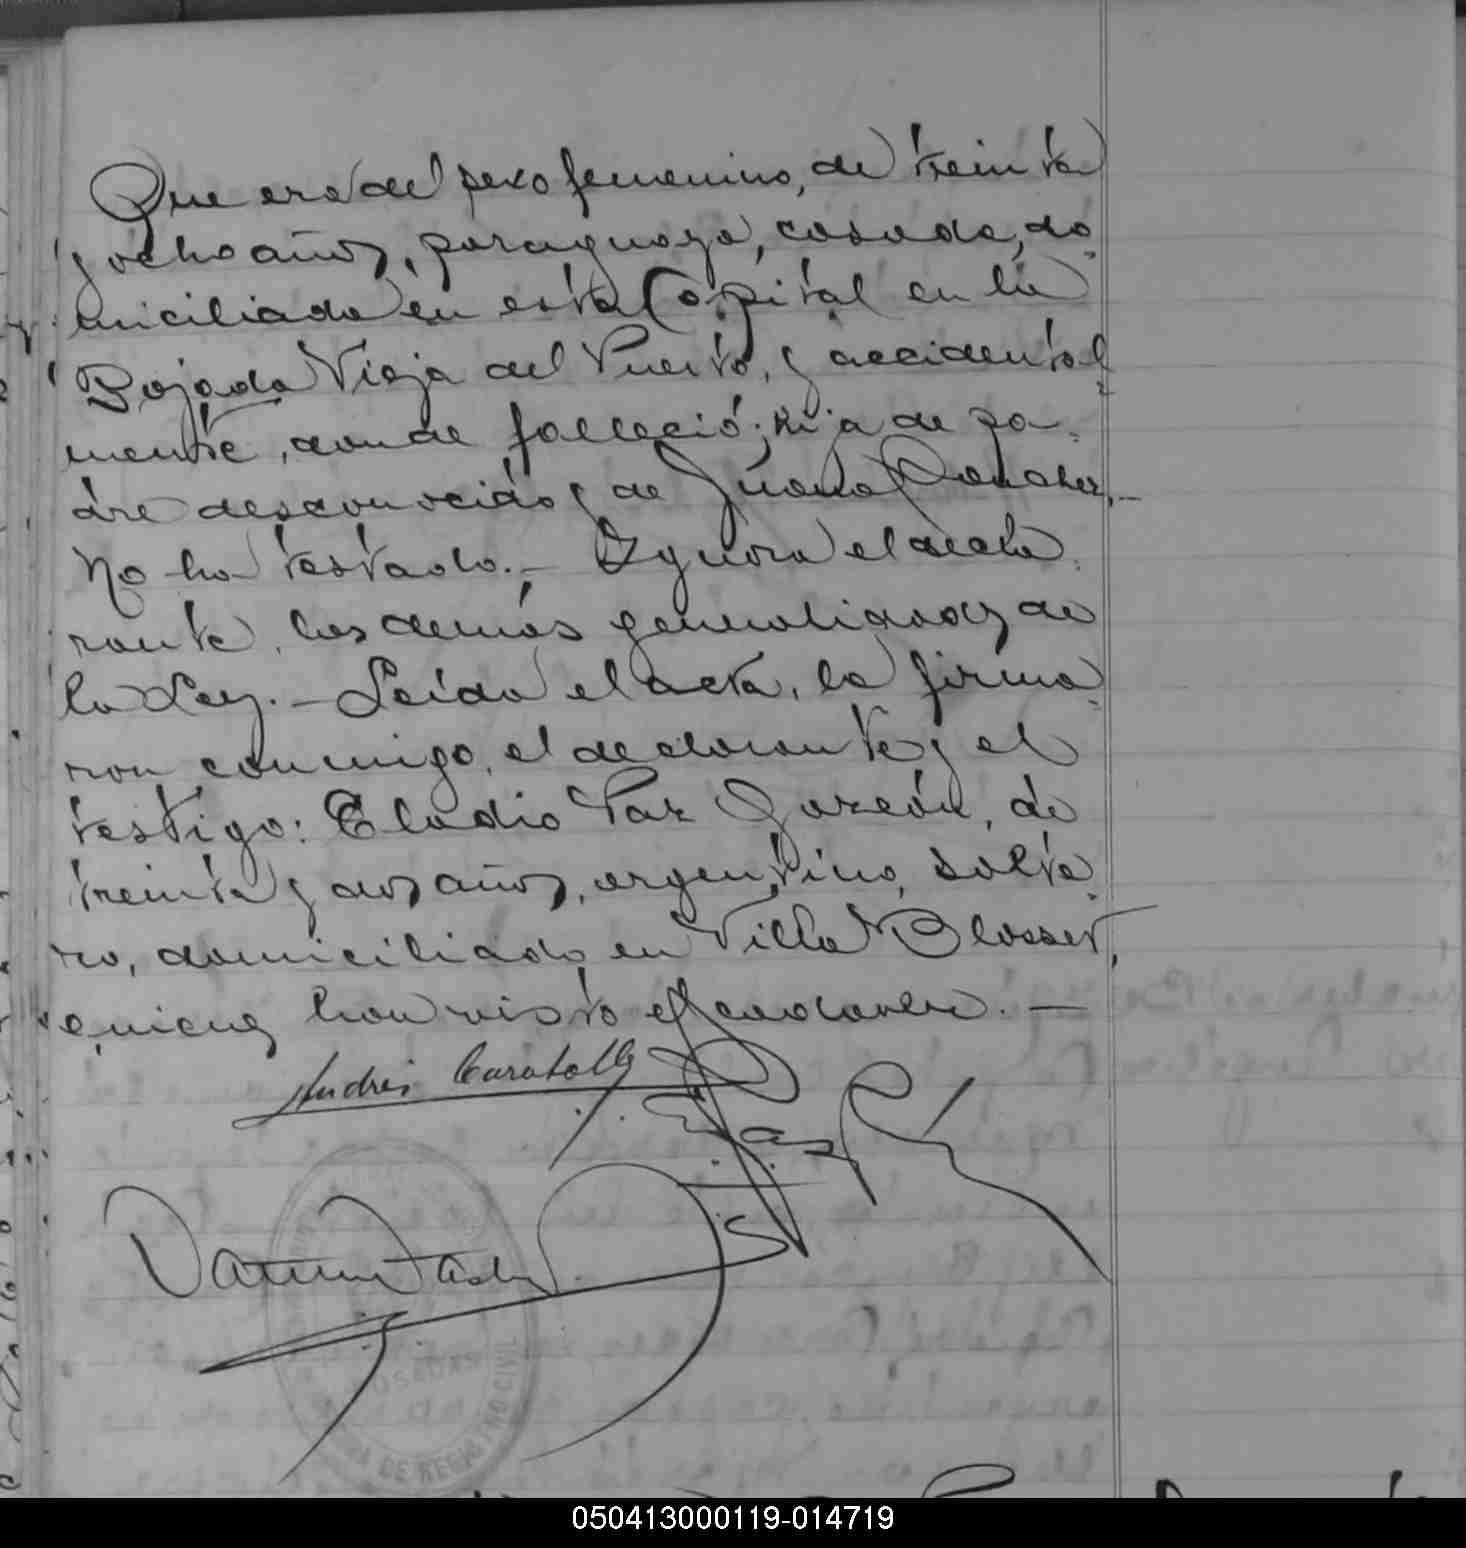 Que era del sexo femenino, de treinta
y ocho años, paraguaya, casada, do-
miciliada en esta Capital en la
Bajada Vieja del Puerto, y accidental-
mente, donde falleció; hija de pa-
dre desconocido y de Juana
No ha testado.— Ignora el decla-
rante, las demás generalidades de
la Ley.— Leída el acta, la firma-
ron conmigo, el declarante y el
testigo: Eladio Paz Garzón, de
treinta y dos años, argentino, solte-
ro, domiciliado en Villa Blosset,
quienes han visto el cadaver.—
Andrés
DE REGISTRO CIVIL
POSADAS
050413000119-014719